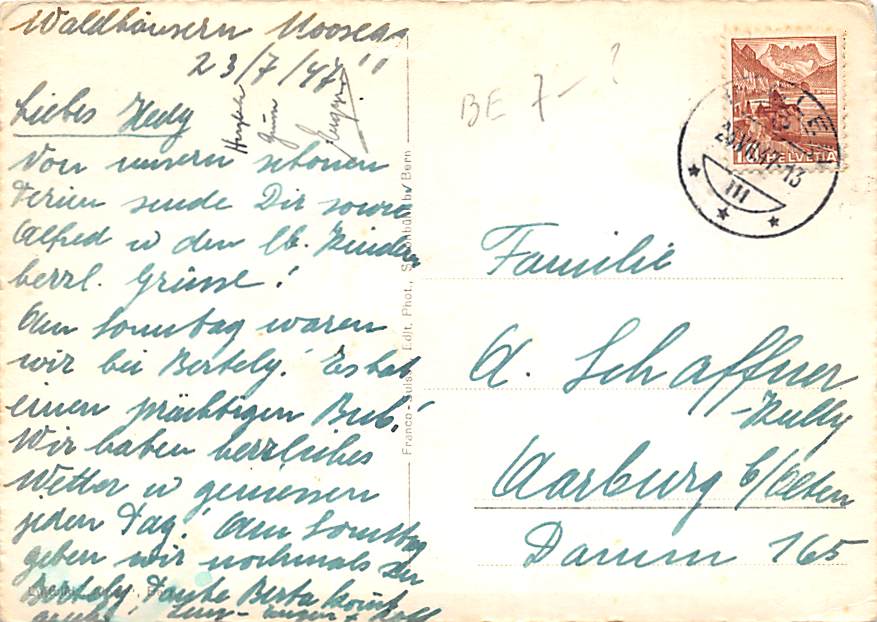 Waldhäusern Moosega
23/7/47
Liebes Hedy
Herzliche
Eugen
Von unsern schönen
Ferien sende Dir sowie
Alfred u den lb. Kindern
herzl. Grüsse!
Am Sonntag waren
wir bei Bertely! Es hat
einen prächtigen Bub!
Wir haben herrliches
Wetter u geniessen
jeden Tag! Am Sonntag
gehen wir nochmals zu
Bertely Tante Berta kommt
BE 7 - ?
HELVETIA
III
Familie
A. Schaffner
Aarburg b/Olten
Damm 165
Franco-Suisse, Edit. Phot., Bern